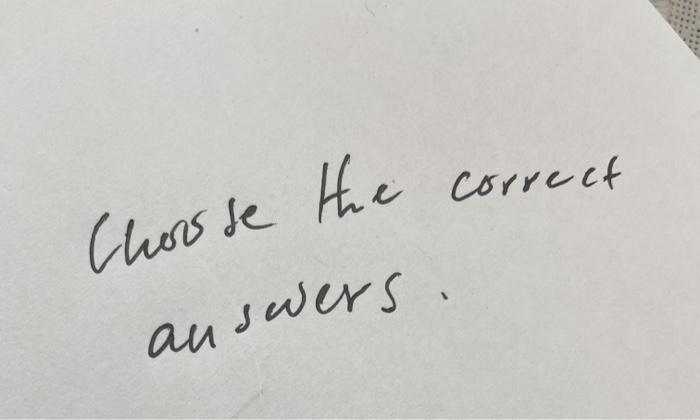 Choose the correct
answers.